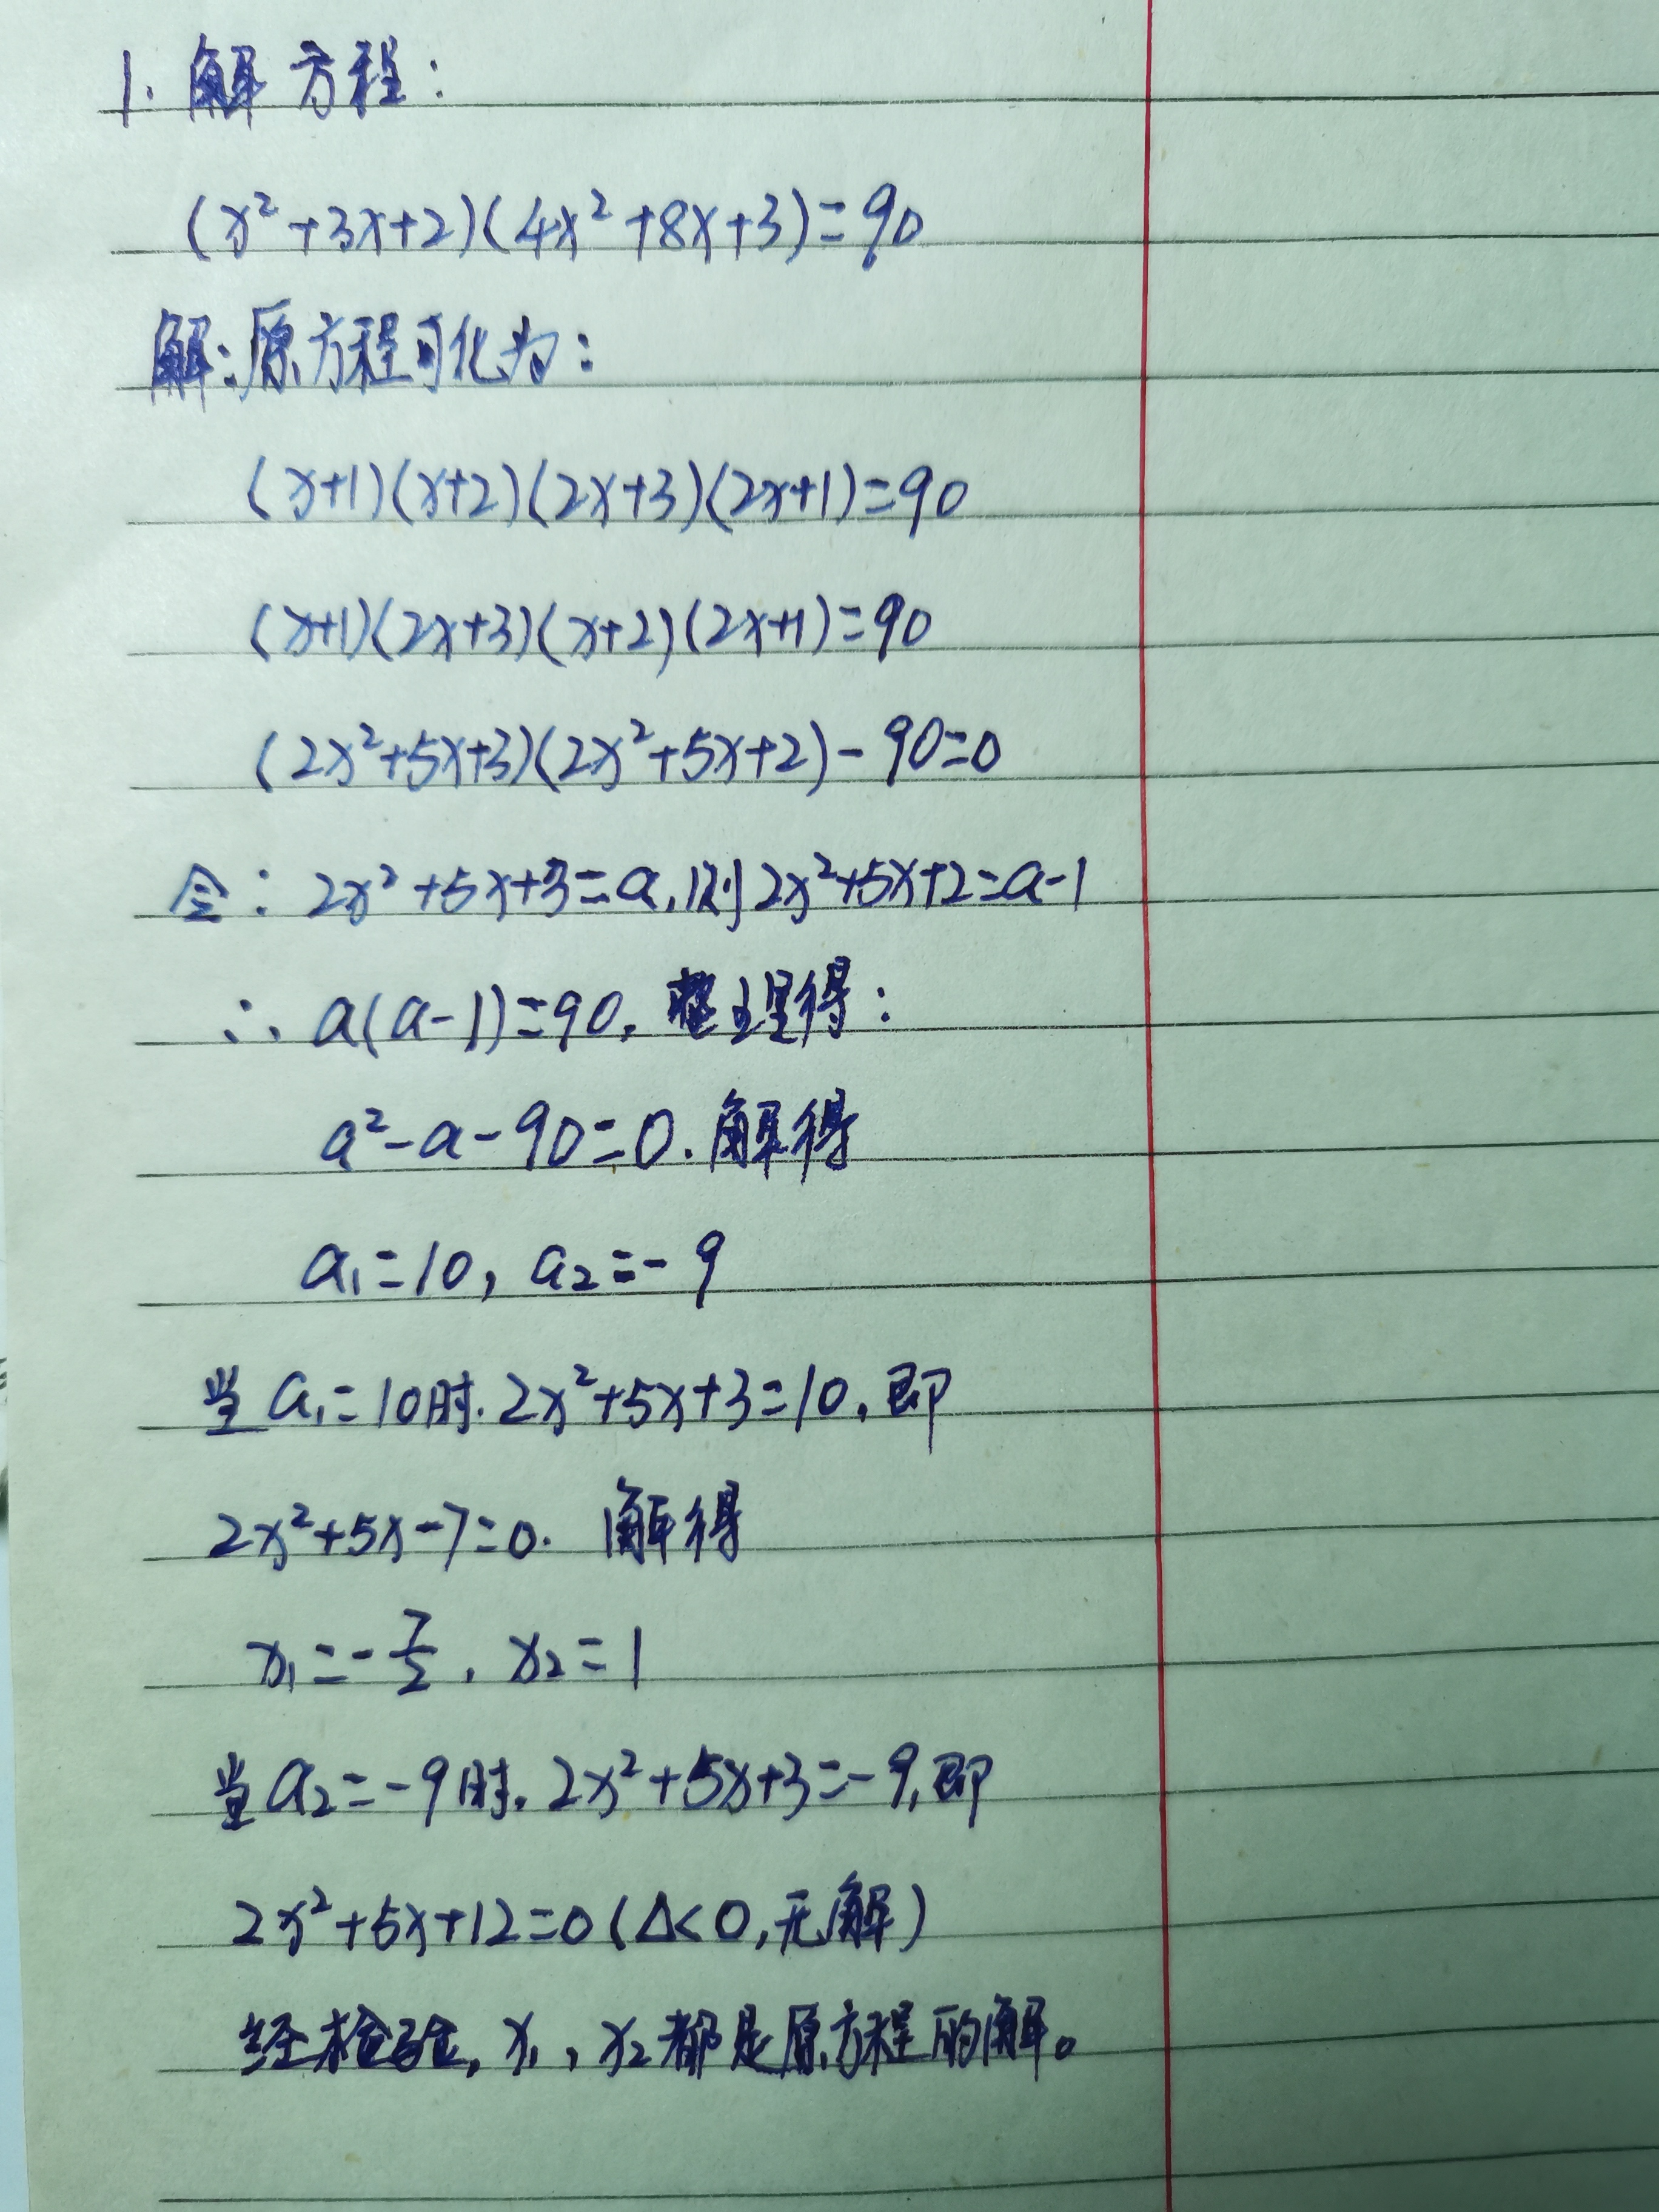 1. 解方程:
(x²+3x+2)(4x²+8x+3)=90
解:原方程可化为:
(x+1)(x+2)(2x+3)(2x+1)=90
(x+1)(2x+3)(x+2)(2x+1)=90
(2x²+5x+3)(2x²+5x+2)-90=0
令: 2x²+5x+3=a,则2x²+5x+2=a-1
∴ a(a-1)=90, 整理得:
a²-a-90=0. 解得
a₁=10, a₂=-9
当a₁=10时. 2x²+5x+3=10, 即
2x²+5x-7=0. 解得
x₁=-7/2, x₂=1
当a₂=-9时. 2x²+5x+3=-9,即
2x²+5x+12=0(Δ<0,无解)
经检验, x₁, x₂都是原方程的解。